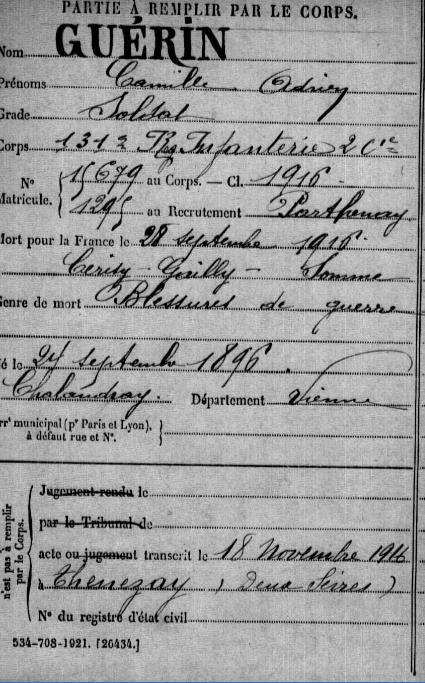 PARTIE À REMPLIR PAR LE CORPS.
Nom GUÉRIN
Prénoms Camille Adrien
Grade Soldat
Corps 131e Rg Infanterie 2 Cie
N° Matricule. { 15679 au Corps. — Cl. 1916
1295 au Recrutement Parthenay
Mort pour la France le 28 septembre 1916
Cérisy-Gailly - Somme
Genre de mort Blessures de guerre
Né le 24 septembre 1896
Chalandray. Département Vienne
Arrt municipal (pr Paris et Lyon), }
à défaut rue et N°.
n'est pas à remplir par le Corps.
Jugement rendu le
par le Tribunal de
acte ou jugement transcrit le 18 Novembre 1916
à Thenezay (Deux Sèvres)
N° du registre d'état civil
534-708-1921. [26434.]